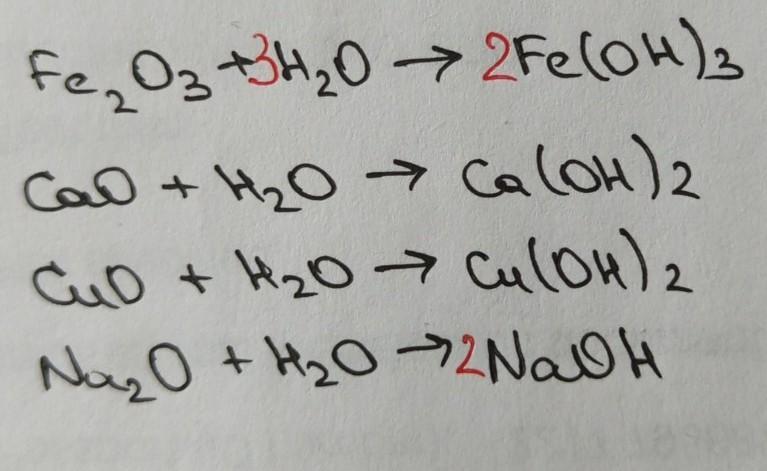 Fe₂O₃ + 3H₂O → 2Fe(OH)₃
CaO + H₂O → Ca(OH)₂
CuO + H₂O → Cu(OH)₂
Na₂O + H₂O → 2NaOH